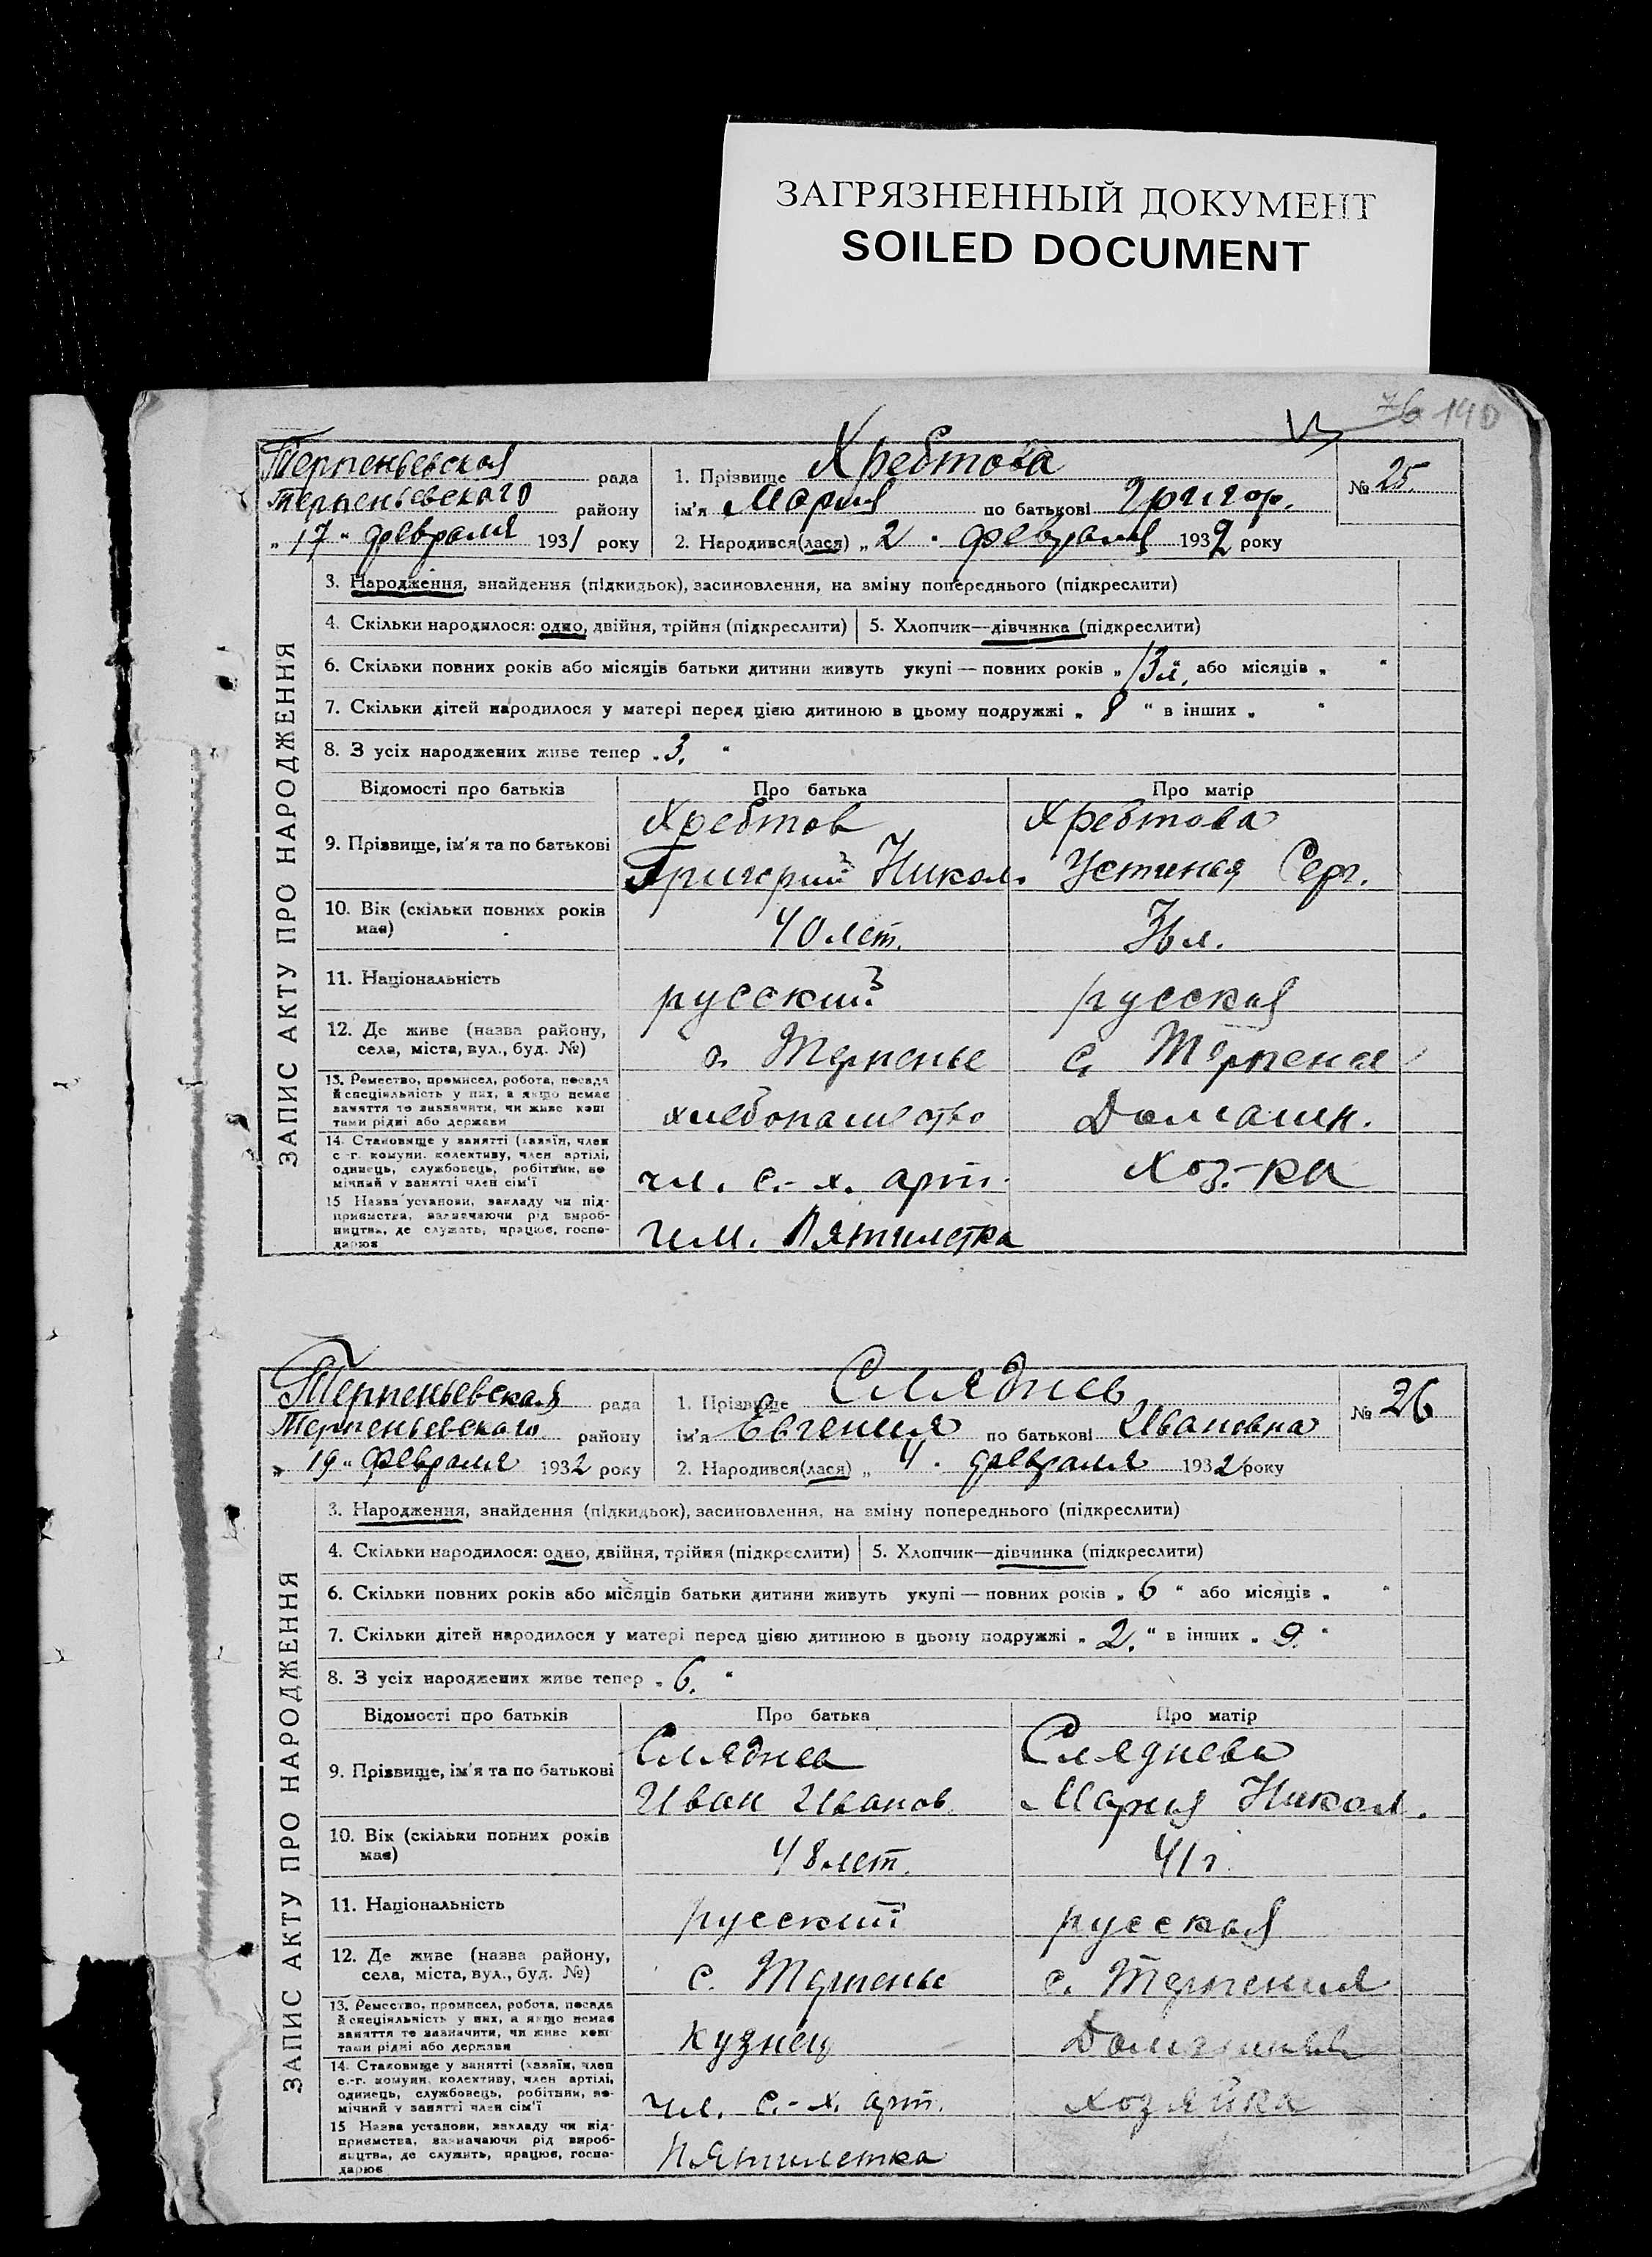 ЗАГРЯЗНЕННЫЙ ДОКУМЕНТ
SOILED DOCUMENT
76 140
Терпеньевская рада
Терпеньевского району
„17“ февраля 1931 року
1. Прізвище Хребтова
ім'я Мария по батькові Григор.
2. Народився(лася) „2“ февраля 1932 року
№ 25.
ЗАПИС АКТУ ПРО НАРОДЖЕННЯ
3. Народження, знайдення (підкидьок), засиновлення, на зміну попереднього (підкреслити)
4. Скільки народилося: одно, двійня, трійня (підкреслити) 5. Хлопчик—дівчинка (підкреслити)
6. Скільки повних років або місяців батьки дитини живуть укупі — повних років „13 л.“ або місяців „ “
7. Скільки дітей народилося у матері перед цією дитиною в цьому подружжі „8“ в інших „ “
8. З усіх народжених живе тепер „3.“
Відомості про батьків Про батька Про матір
9. Прізвище, ім'я та по батькові
Хребтов Хребтова
Григорий Никол. Устинья Серг.
10. Вік (скільки повних років має) 40 лет. 36 л.
11. Національність русский русская
12. Де живе (назва району, села, міста, вул., буд. №) с. Терпенье с. Терпенье
13. Ремество, промисел, робота, посада й спеціяльність у них, а якщо немає заняття то зазначити, чи живе коштами рідні або держави хлебопашество Домашн.
14. Становище у занятті (хазяїн, член с.-г. комуни, колективу, член артілі, одинець, службовець, робітник, помічний у занятті член сім'ї чл. с.-х. арт. хоз-ка
15 Назва установи, закладу чи підприємства, зазначаючи рід виробництва, де служать, працює, господарює им. Пятилетка
Терпеньевская рада
Терпеньевского району
„19“ февраля 1932 року
1. Прізвище Сляднев
ім'я Евгения по батькові Ивановна
2. Народився(лася) „4“ февраля 1932 року
№ 26
ЗАПИС АКТУ ПРО НАРОДЖЕННЯ
3. Народження, знайдення (підкидьок), засиновлення, на зміну попереднього (підкреслити)
4. Скільки народилося: одно, двійня, трійня (підкреслити) 5. Хлопчик—дівчинка (підкреслити)
6. Скільки повних років або місяців батьки дитини живуть укупі — повних років „6“ або місяців „ “
7. Скільки дітей народилося у матері перед цією дитиною в цьому подружжі „2.“ в інших „9.“
8. З усіх народжених живе тепер „6.“
Відомості про батьків Про батька Про матір
9. Прізвище, ім'я та по батькові
Сляднев Сляднева
Иван Иванов. Мария Никол.
10. Вік (скільки повних років має) 48 лет. 41 г.
11. Національність русский русская
12. Де живе (назва району, села, міста, вул., буд. №) с. Терпенье с. Терпения
13. Ремество, промисел, робота, посада й спеціяльність у них, а якщо немає заняття то зазначити, чи живе коштами рідні або держави кузнец Домашняя
14. Становище у занятті (хазяїн, член с.-г. комуни, колективу, член артілі, одинець, службовець, робітник, помічний у занятті член сім'ї чл. с.-х. арт. хозяйка
15 Назва установи, закладу чи підприємства, зазначаючи рід виробництва, де служить, працює, господарює Пятилетка